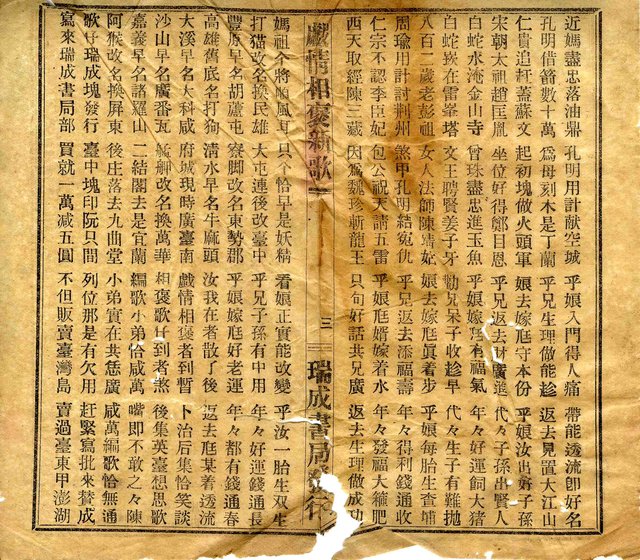 近媽盡忠落油鼎 孔明用計献空城 乎娘入門得人痛 帶能透流卽好名
孔明借箭數十萬 為母刻木是丁蘭 乎兄生理做能趁 返去見置大江山
仁貴追赶蓋蘇文 起初塊做火頭軍 娘去嫁尪守本份 乎娘汝出好子孫
宋朝太祖趙匡胤 坐位好得鄭目恩 乎兄返去財廣進 年々子孫出賢人
白蛇水淹金山寺 曾珠盡忠進玉魚 乎娘嫁尪有福氣 年々好運飼大猪
白蛇崁在雷峯塔 文王聘賢姜子牙 勸兄呆子收趁早 代々生子有難抛
八百二歲老彭祖 女人法師陳靖 娘去嫁尪眞着步 乎娘每胎生查埔
周瑜用計討荆州 煞甲孔明結寃仇 乎兄返去添福壽 年々得利錢通收
仁宗不認李臣妃 包公祝天請五雷 乎娘尪婿嫁着水 年々發福大箍肥
西天取經陳三藏 因為魏珍斬龍王 只句好話共兄廣 返去生理做成功
戲情相褒新歌 三 瑞成書局發行
媽祖今將順風耳 只个恰早是妖精 看娘正實能改變 乎汝一胎生双生
打猫改名換民雄 大屯連後改臺中 乎兄子孫有中用 年々好運錢通長
豐原早名葫蘆屯 寮脚改名東勢郡 乎娘嫁尪好老運 年々都有錢通春
高雄舊底名打狗 清水早名牛麻頭 汝我在者散了後 返去尪某着透流
大溪早名大科咸 府城現時廣臺南 戲情相褒者到暫 卜治后集恰笑談
沙山早名廣番瓦 艋舺改名換萬華 相褒歌仔到者煞 後集英臺想思歌
嘉義早名諸羅山 二結閣去是宜蘭 編歌小弟恰咸萬 嘴卽不敢之々陳
阿猴改名換屏東 後庄落去九曲堂 小弟實在共恁廣 咸萬編歌恰無通
歌仔瑞成塊發行 臺中塊印阮只間 列位那是有欠用 赶緊寫批來賛成
寫來瑞成書局部 買就一萬減五圓 不但販賣臺灣島 賣過臺東甲澎湖